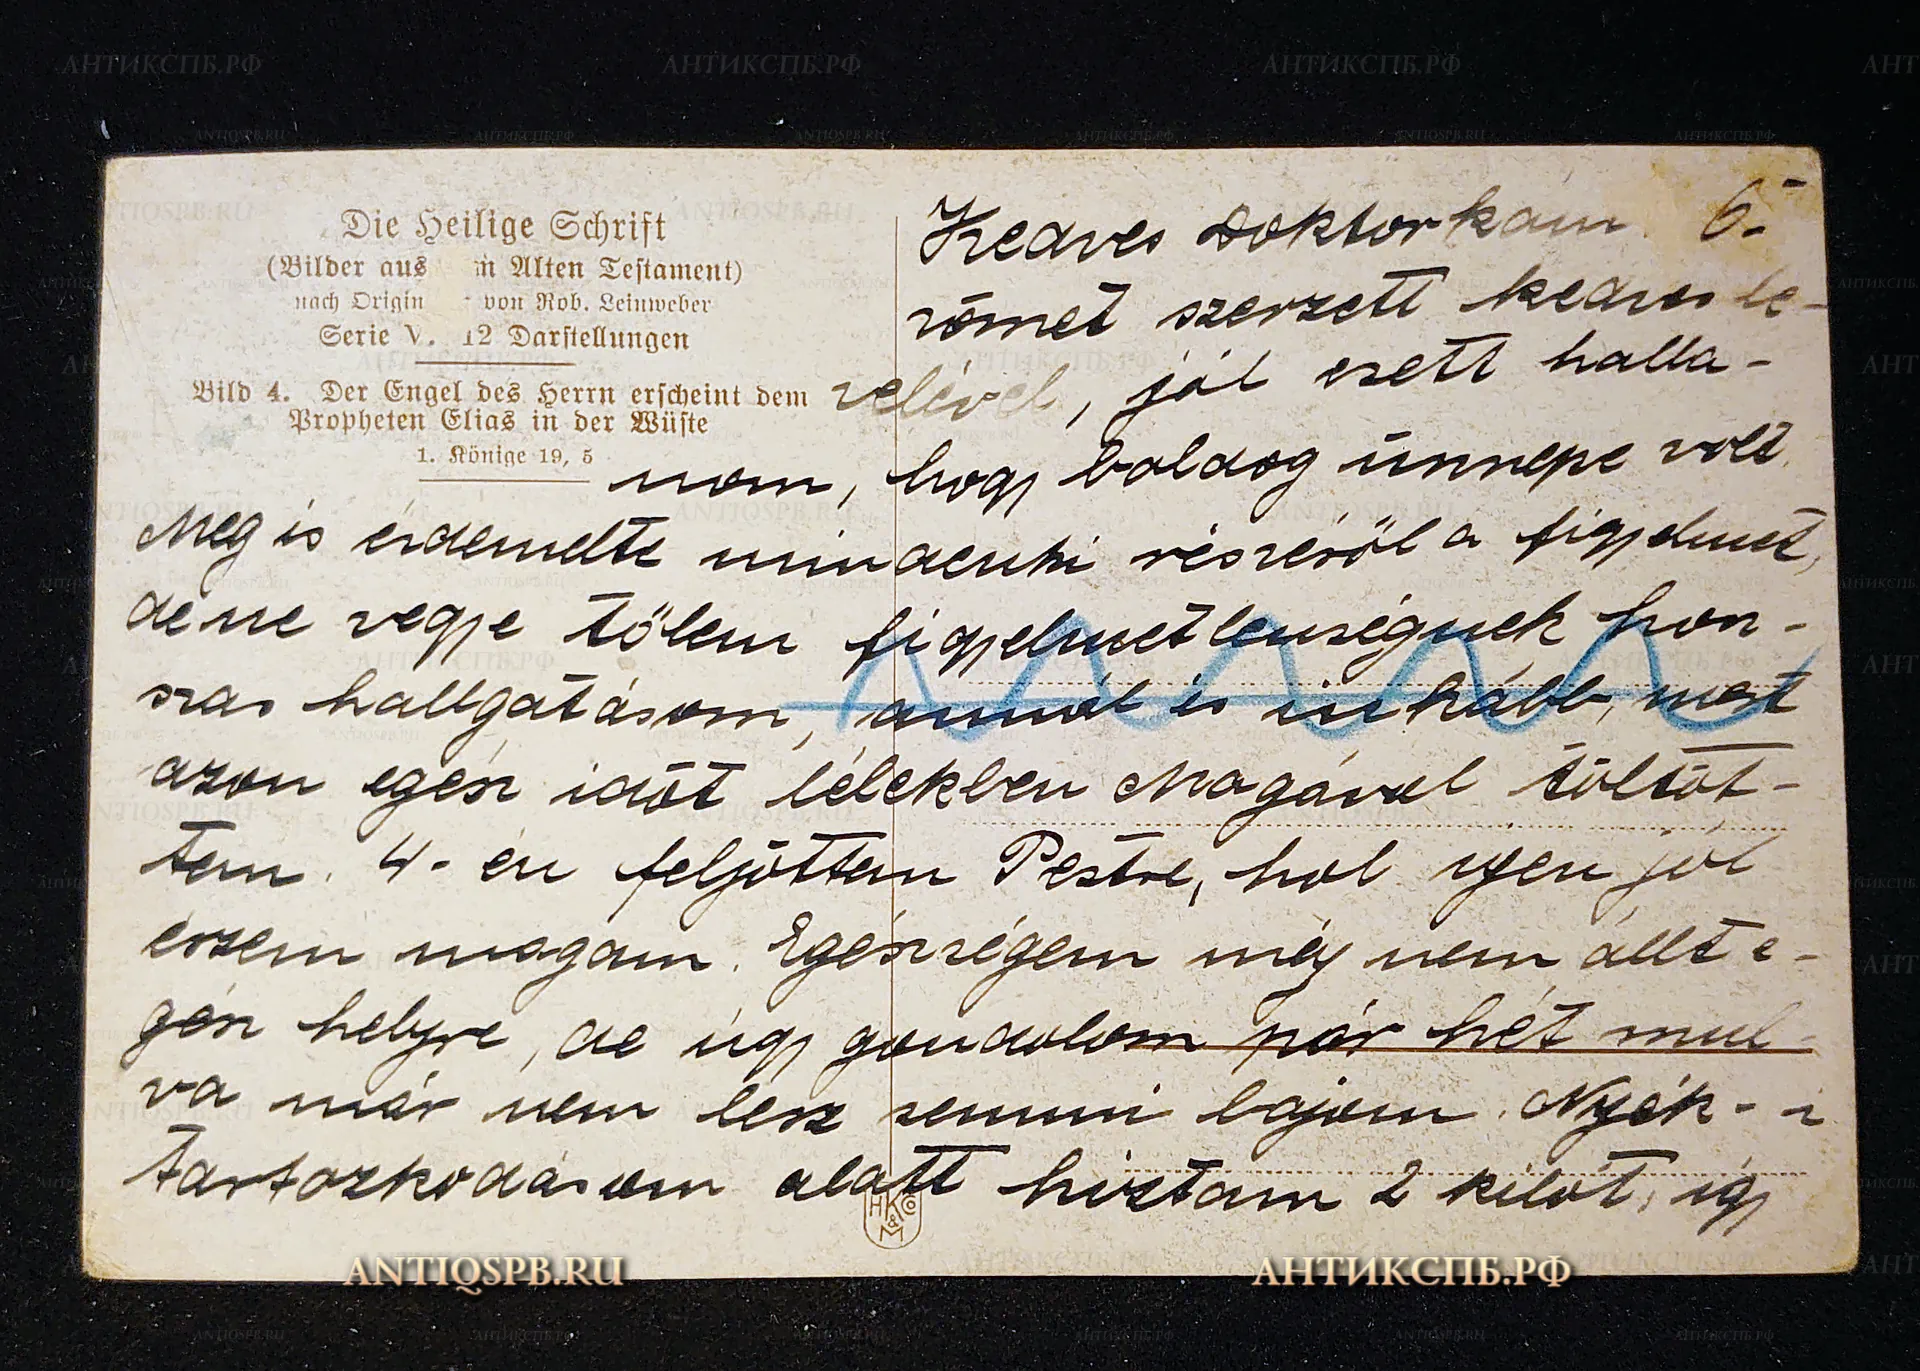 Die Heilige Schrift
(Bilder aus m Alten Testament)
nach Origin von Rob. Leinweber
Serie V. 12 Darstellungen
Bild 4. Der Engel des Herrn erscheint dem
Propheten Elias in der Wüste
1. Könige 19, 5
Kedves Doktorkám 6.-
römet szerzett kedves le-
velével, jól esett halla-
nom, hogy boldog ünnepe volt.
Meg is érdemelte mindenki részéröl a figyelmet,
de ne vegye tőlem figyelmetlenségnek hos-
szas hallgatásom, annál is inkább, mert
azon egész időt lélekben Magával töltöt-
tem. 4-én feljöttem Pestre, hol igen jól
érzem magam. Egészségem még nem állt e-
gész helyre, de úgy gondolom pár hét mul-
va már nem lesz semmi bajom. Nyék-i
tartozkodásom alatt híztam 2 kilót, így
HK Co & M
ANTIQSPB.RU
АНТИКСПБ.РФ